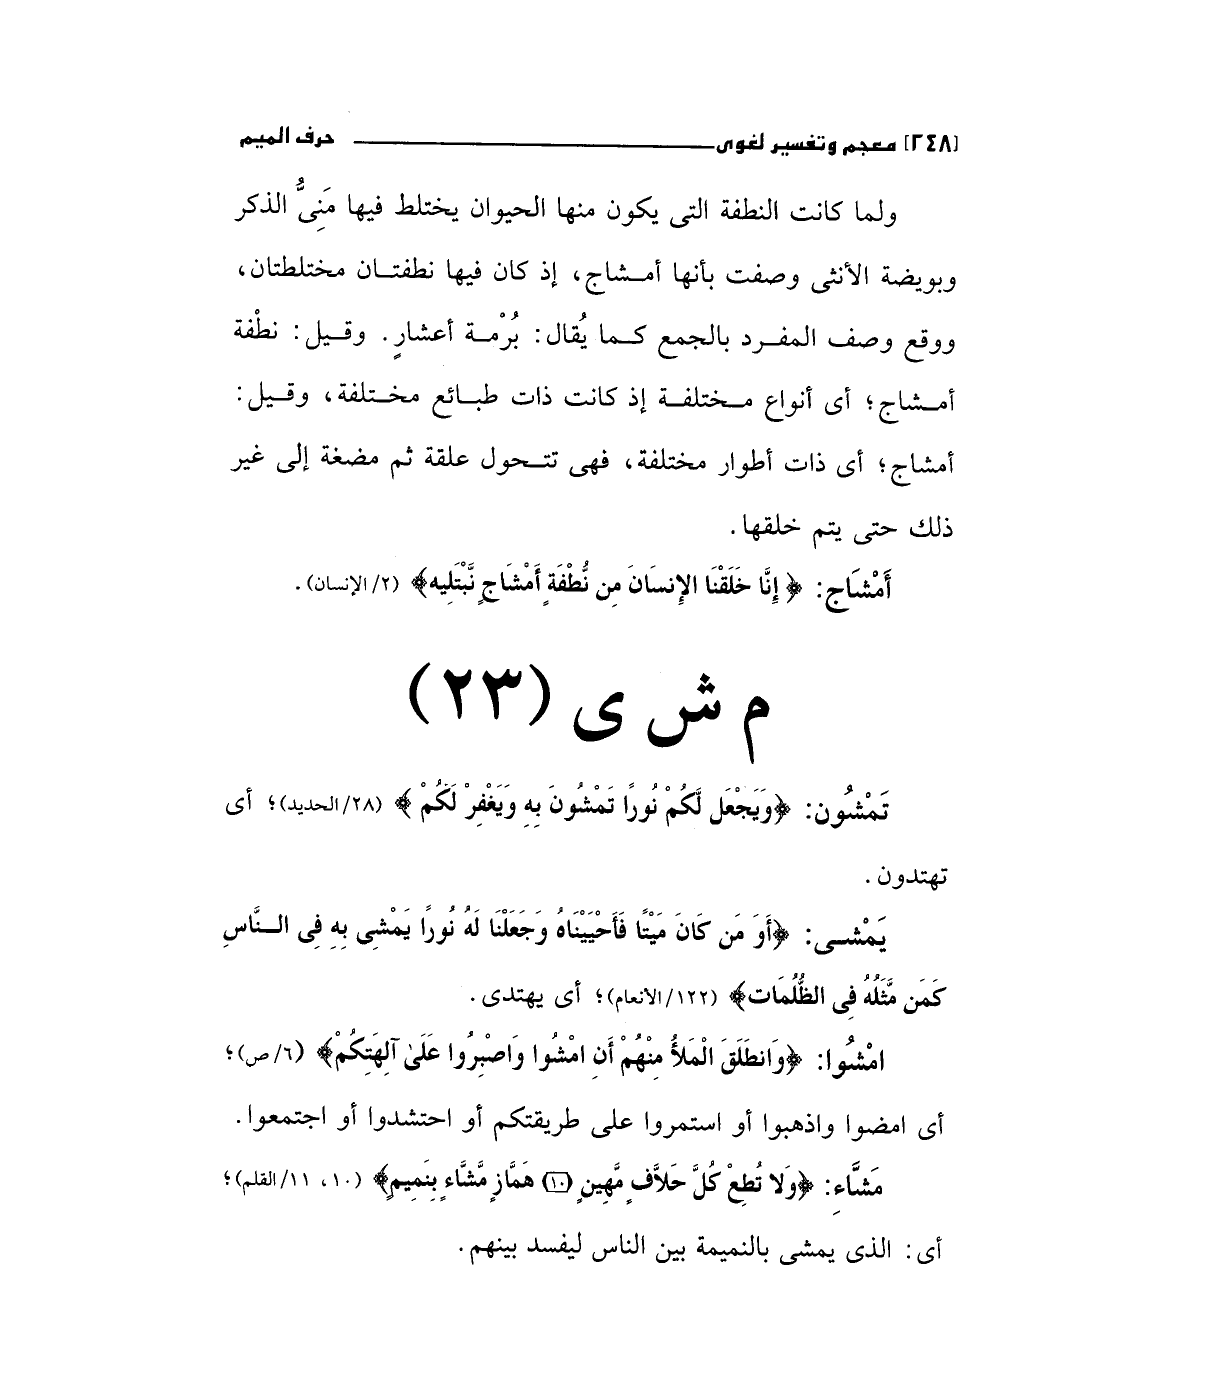 [٢٤٨] معجم وتفسير لغوى حرف الميم
ولما كانت النطفة التى يكون منها الحيوان يختلط فيها مَنِىُّ الذكر
وبويضة الأنثى وصفت بأنها أمشاج، إذ كان فيها نطفتان مختلطتان،
ووقع وصف المفرد بالجمع كما يُقال: بُرْمة أعشارٍ. وقيل: نطْفة
أمشاج؛ أى أنواع مختلفة إذ كانت ذات طبائع مختلفة، وقيل:
أمشاج؛ أى ذات أطوار مختلفة، فهى تتحول علقة ثم مضغة إلى غير
ذلك حتى يتم خلقها.
أَمْشَاج: ﴿ إِنَّا خَلَقْنَا الإِنسَانَ مِن نُّطْفَةٍ أَمْشَاجٍ نَّبْتَلِيه﴾ (٢/ الإنسان).
م ش ى (٢٣)
تَمْشُون: ﴿وَيَجْعَل لَّكُمْ نُورًا تَمْشُونَ بِهِ وَيَغْفِرْ لَكُمْ ﴾ (٢٨/ الحديد)؛ أى
تهتدون.
يَمْشى: ﴿أَوَ مَن كَانَ مَيْتًا فَأَحْيَيْنَاهُ وَجَعَلْنَا لَهُ نُورًا يَمْشِى بِهِ فِى النَّاسِ
كَمَن مَّثَلُهُ فِى الظُّلُمَات﴾ (١٢٢/ الأنعام)؛ أى يهتدى.
امْشُوا: ﴿وَانطَلَقَ الْمَلأُ مِنْهُمْ أَنِ امْشُوا وَاصْبِرُوا عَلَىٰ آلِهَتِكُمْ﴾ (٦/ ص)؛
أى امضوا واذهبوا أو استمروا على طريقتكم أو احتشدوا أو اجتمعوا.
مَشَّاءِ: ﴿وَلا تُطِعْ كُلَّ حَلاَّفٍ مَّهِينٍ (١٠) هَمَّازٍ مَّشَّاءٍ بِنَمِيمٍ﴾ (١٠، ١١/ القلم)؛
أى: الذى يمشى بالنميمة بين الناس ليفسد بينهم.